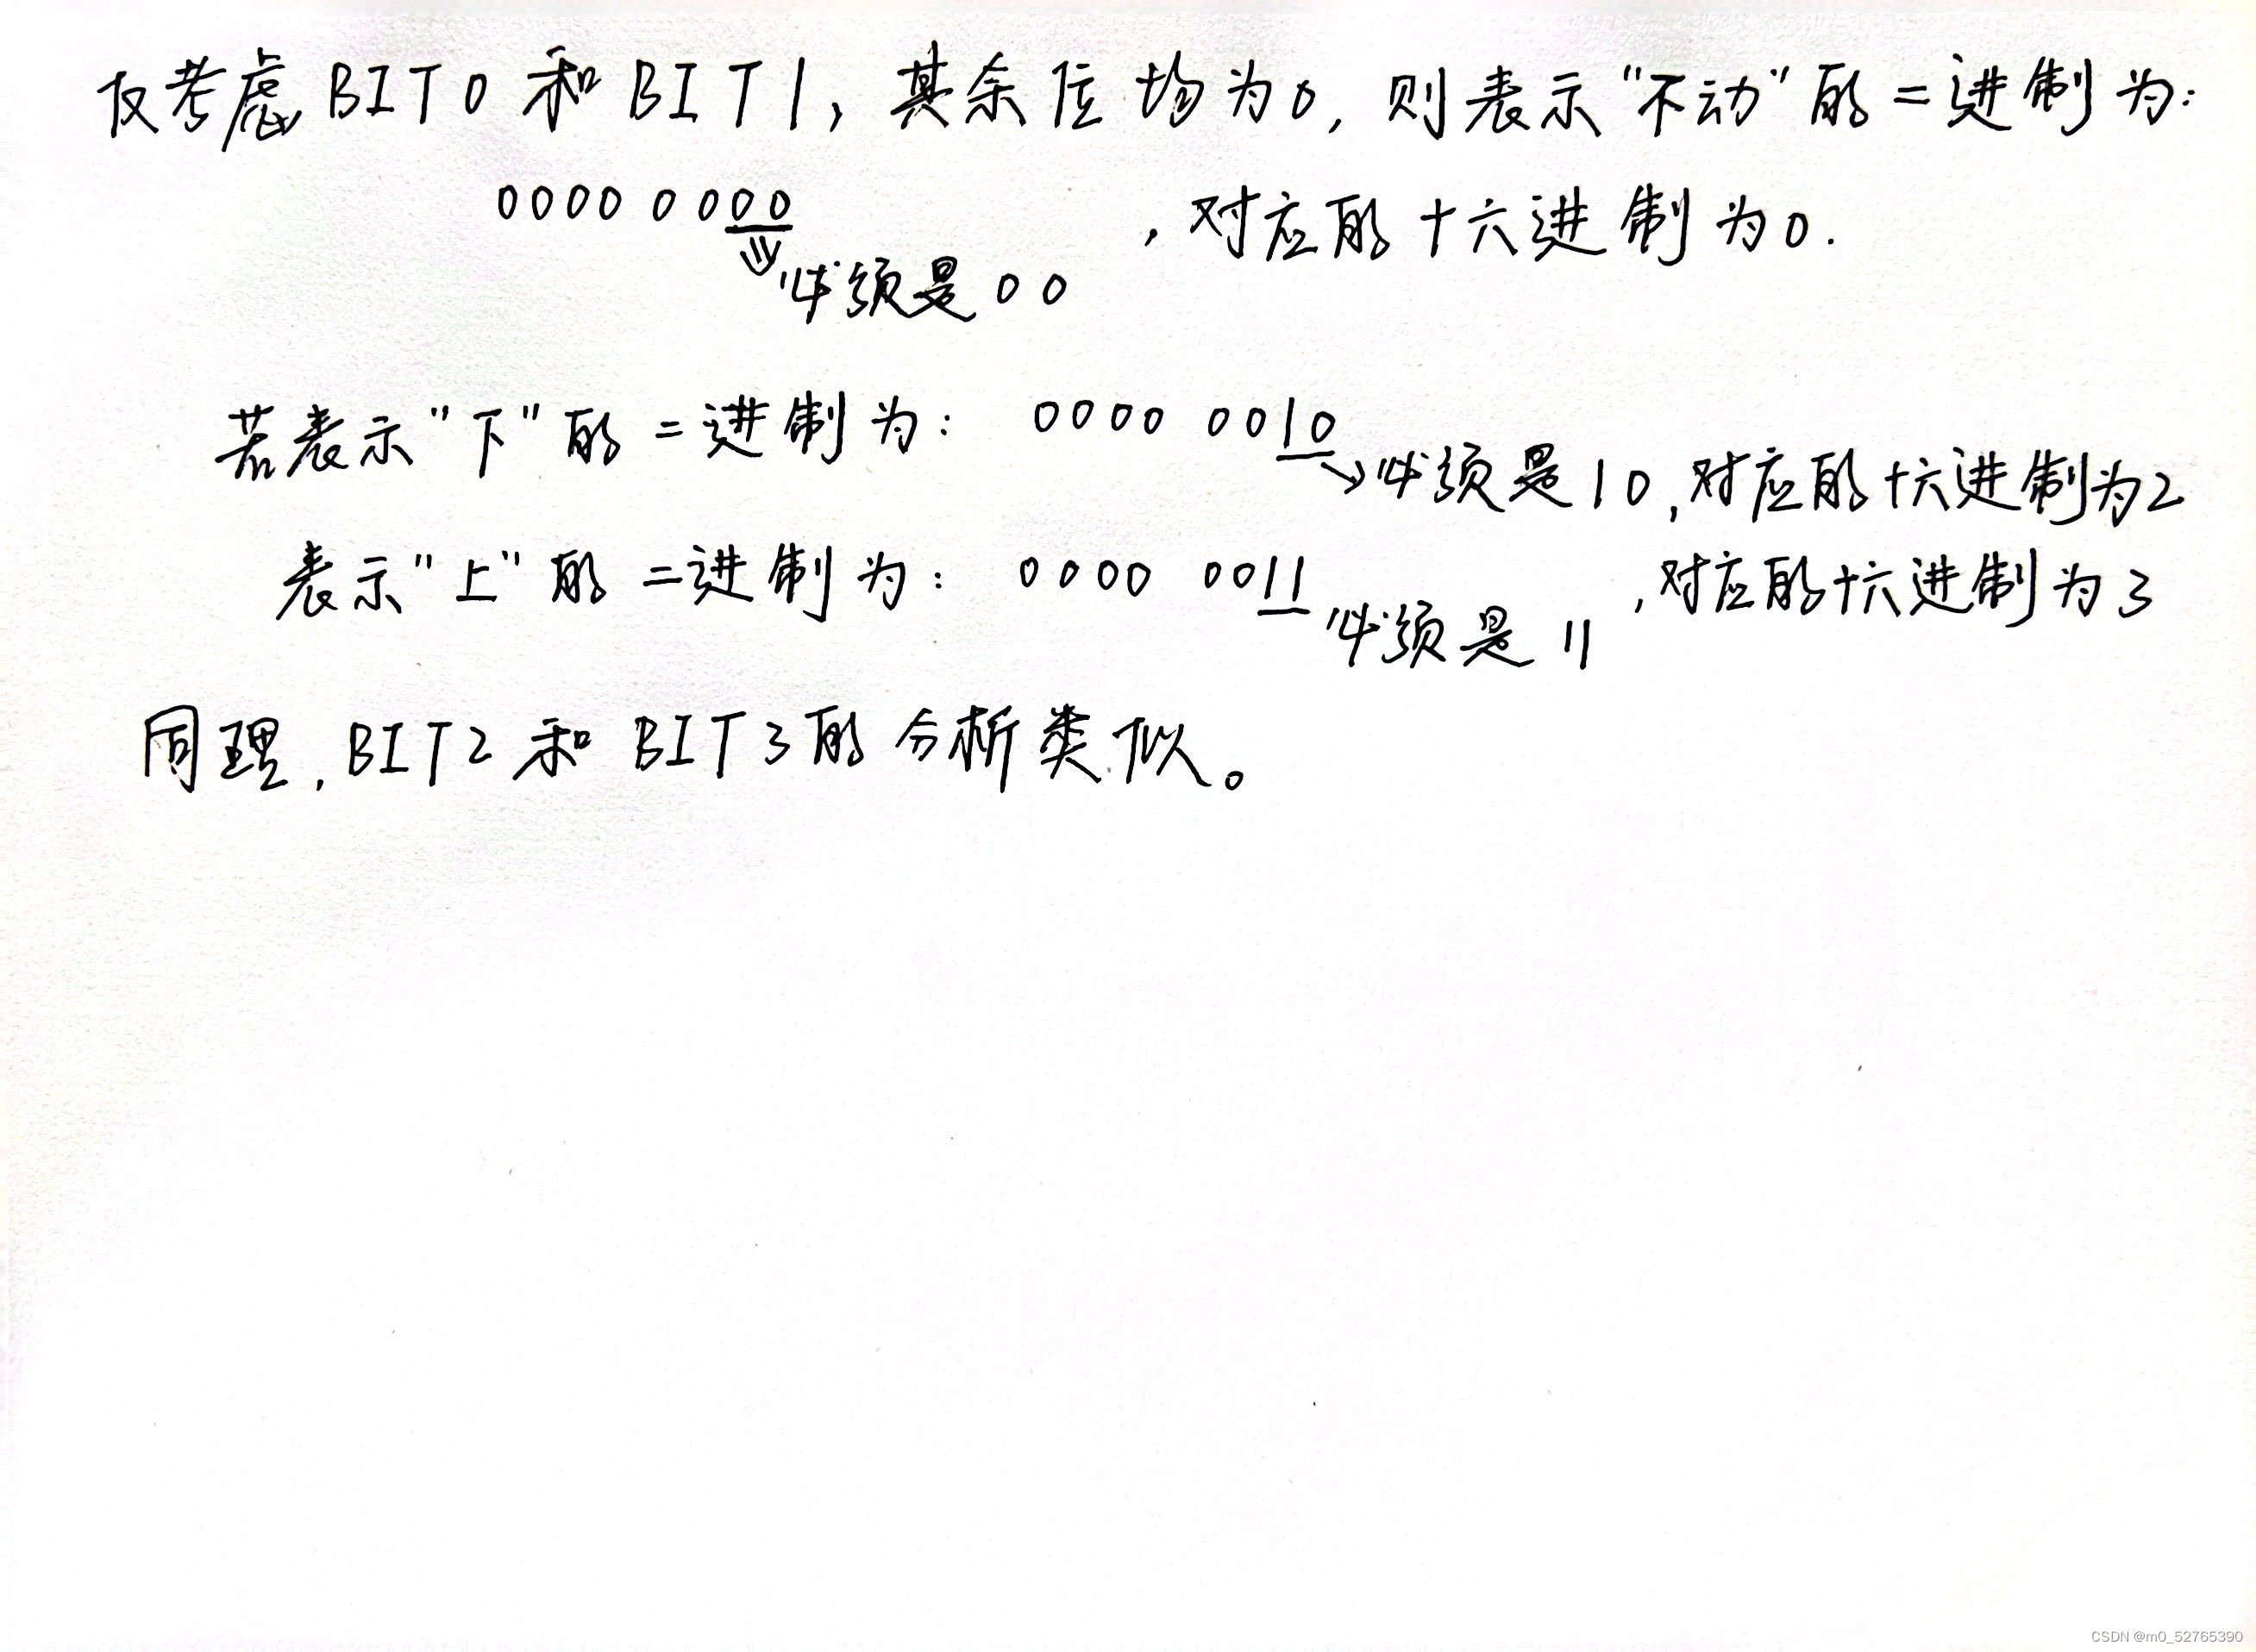 仅考虑BIT0和BIT1，其余位均为0，则表示“不动”的二进制为：
0000 0000，对应的十六进制为0.
必须是00
若表示“下”的二进制为：0000 0010
必须是10,对应的十六进制为2
表示“上”的二进制为：0000 0011，对应的十六进制为3
必须是11
同理，BIT2和BIT3的分析类似。
CSDN @m0_52765390